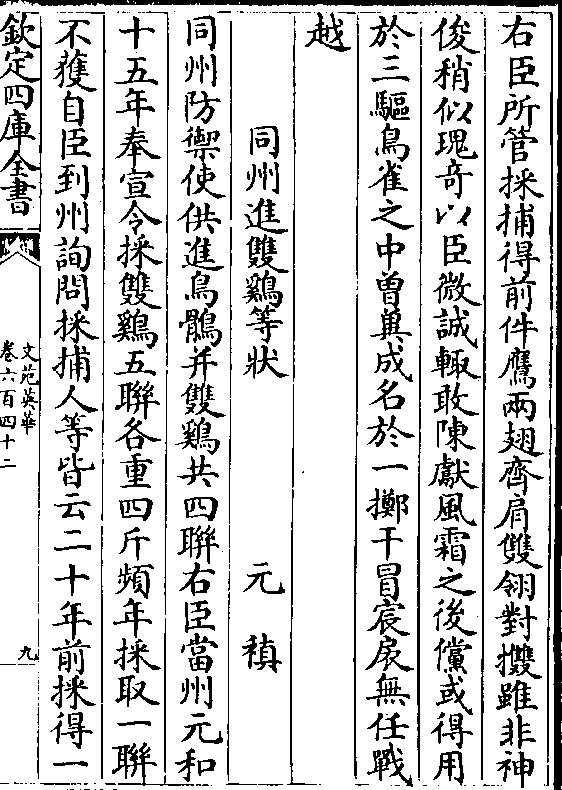 右臣所管採捕得前件鷹兩翅齊肩雙翎對㩳雖非神
俊稍似瑰奇以臣微誠輙敢陳獻風霜之後儻或得用
於三驅鳥雀之中曾兾成名於一擲干冒宸扆無任戰
越
同州進雙鷄等狀　元稹
同州防禦使供進鳥鶻并雙鷄共四聨右臣當州元和
十五年奉宣令採雙鷄五聨各重四斤頻年採取一聨
不獲自臣到州詢問採捕人等皆云二十年前採得一
欽定四庫全書
文苑英華
卷六百四十二
九